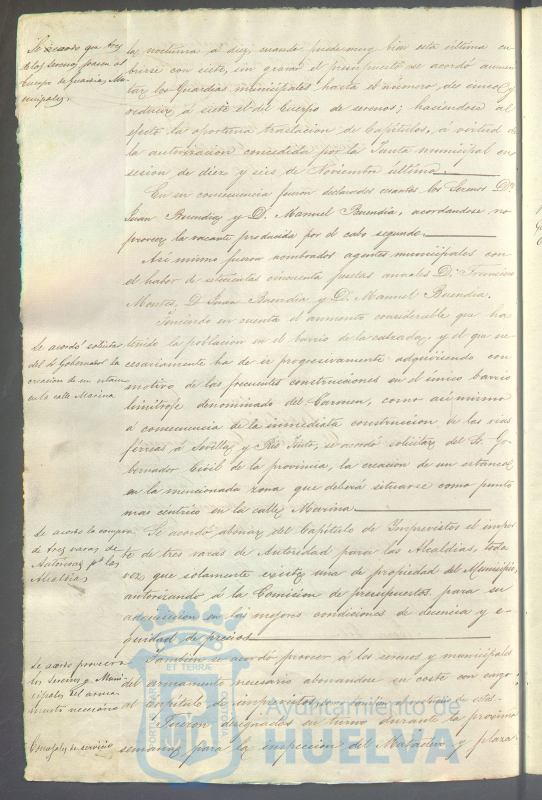 Se acordó que tres
de los serenos pasen al
Cuerpo de Guardias Mu-
nicipales.
la nocturna á diez, cuando puede muy bien esta última cu-
brirse con siete, sin gravar el presupuesto se acordó aumen-
tar los Guardias municipales hasta el número de cinco y
reducir á siete el del Cuerpo de serenos; haciéndose al
efecto la oportuna traslacion de Capítulos, á virtud de
la autorizacion concedida por la Junta municipal en
sesion de diez y seis de Noviembre último.
En su consecuencia fueron declarados cesantes los Serenos Dn
Juan Buendia y D. Manuel Buendia, acordandose no
proveer la vacante producida por el cabo segundo.
Asi mismo fueron nombrados agentes municipales con
el haber de setecientas cincuenta pesetas anuales Dn Francisco
Montes, D Juan Buendia y D. Manuel Buendia.
Se acordó solicitar
del S. Gobernador la
creacion de un estanco
en la calle Marina
Teniendo en cuenta el aumento considerable que ha
tenido la poblacion en el barrio de la calzada, y el que ne-
cesariamente ha de ir progresivamente adquiriendo con
motivo de las frecuentes construcciones en el único barrio
limítrofe denominado del Carmen, como asi mismo
á consecuencia de la inmediata construccion de las vias
férreas á Sevilla y Rio Tinto, se acordó solicitar del Sr. Go-
bernador Civil de la provincia, la creacion de un estanco
en la mencionada zona que deberá situarse como punto
mas céntrico en la calle Marina.
Se acordó la compra
de tres varas de
Autoridad pa las
Alcaldias
Se acordó abonar del Capítulo de Imprevistos el impor-
te de tres varas de Autoridad para las Alcaldias, toda
vez que solamente existe una de propiedad del Municipio,
autorizando á la Comision de presupuestos para su
adquisicion en las mejores condiciones de decencia y e-
quidad de precios.
Se acordó proveer á
los Serenos y Muni-
cipales del arma-
mento necesario
Tambien se acordó proveer á los serenos y municipales
del armamento necesario abonandose su coste con cargo
al capítulo de imprevistos
Concejales de servicio
Fueron designados en turno durante la próxima
semana para la inspeccion del Matadero y plaza
ET TERRA
Ayuntamiento de
HUELVA